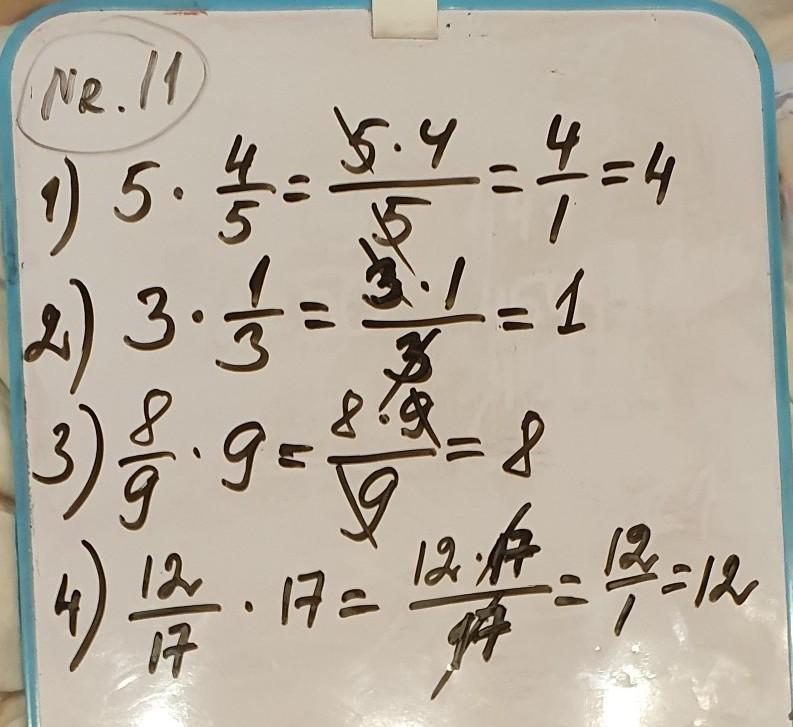 Nr. 11
1) 5 · 4/5 = 5 · 4/5 = 4/1 = 4
2) 3 · 1/3 = 3 · 1/3 = 1
3) 8/9 · 9 = 8 · 9/9 = 8
4) 12/17 · 17 = 12 · 17/17 = 12/1 = 12